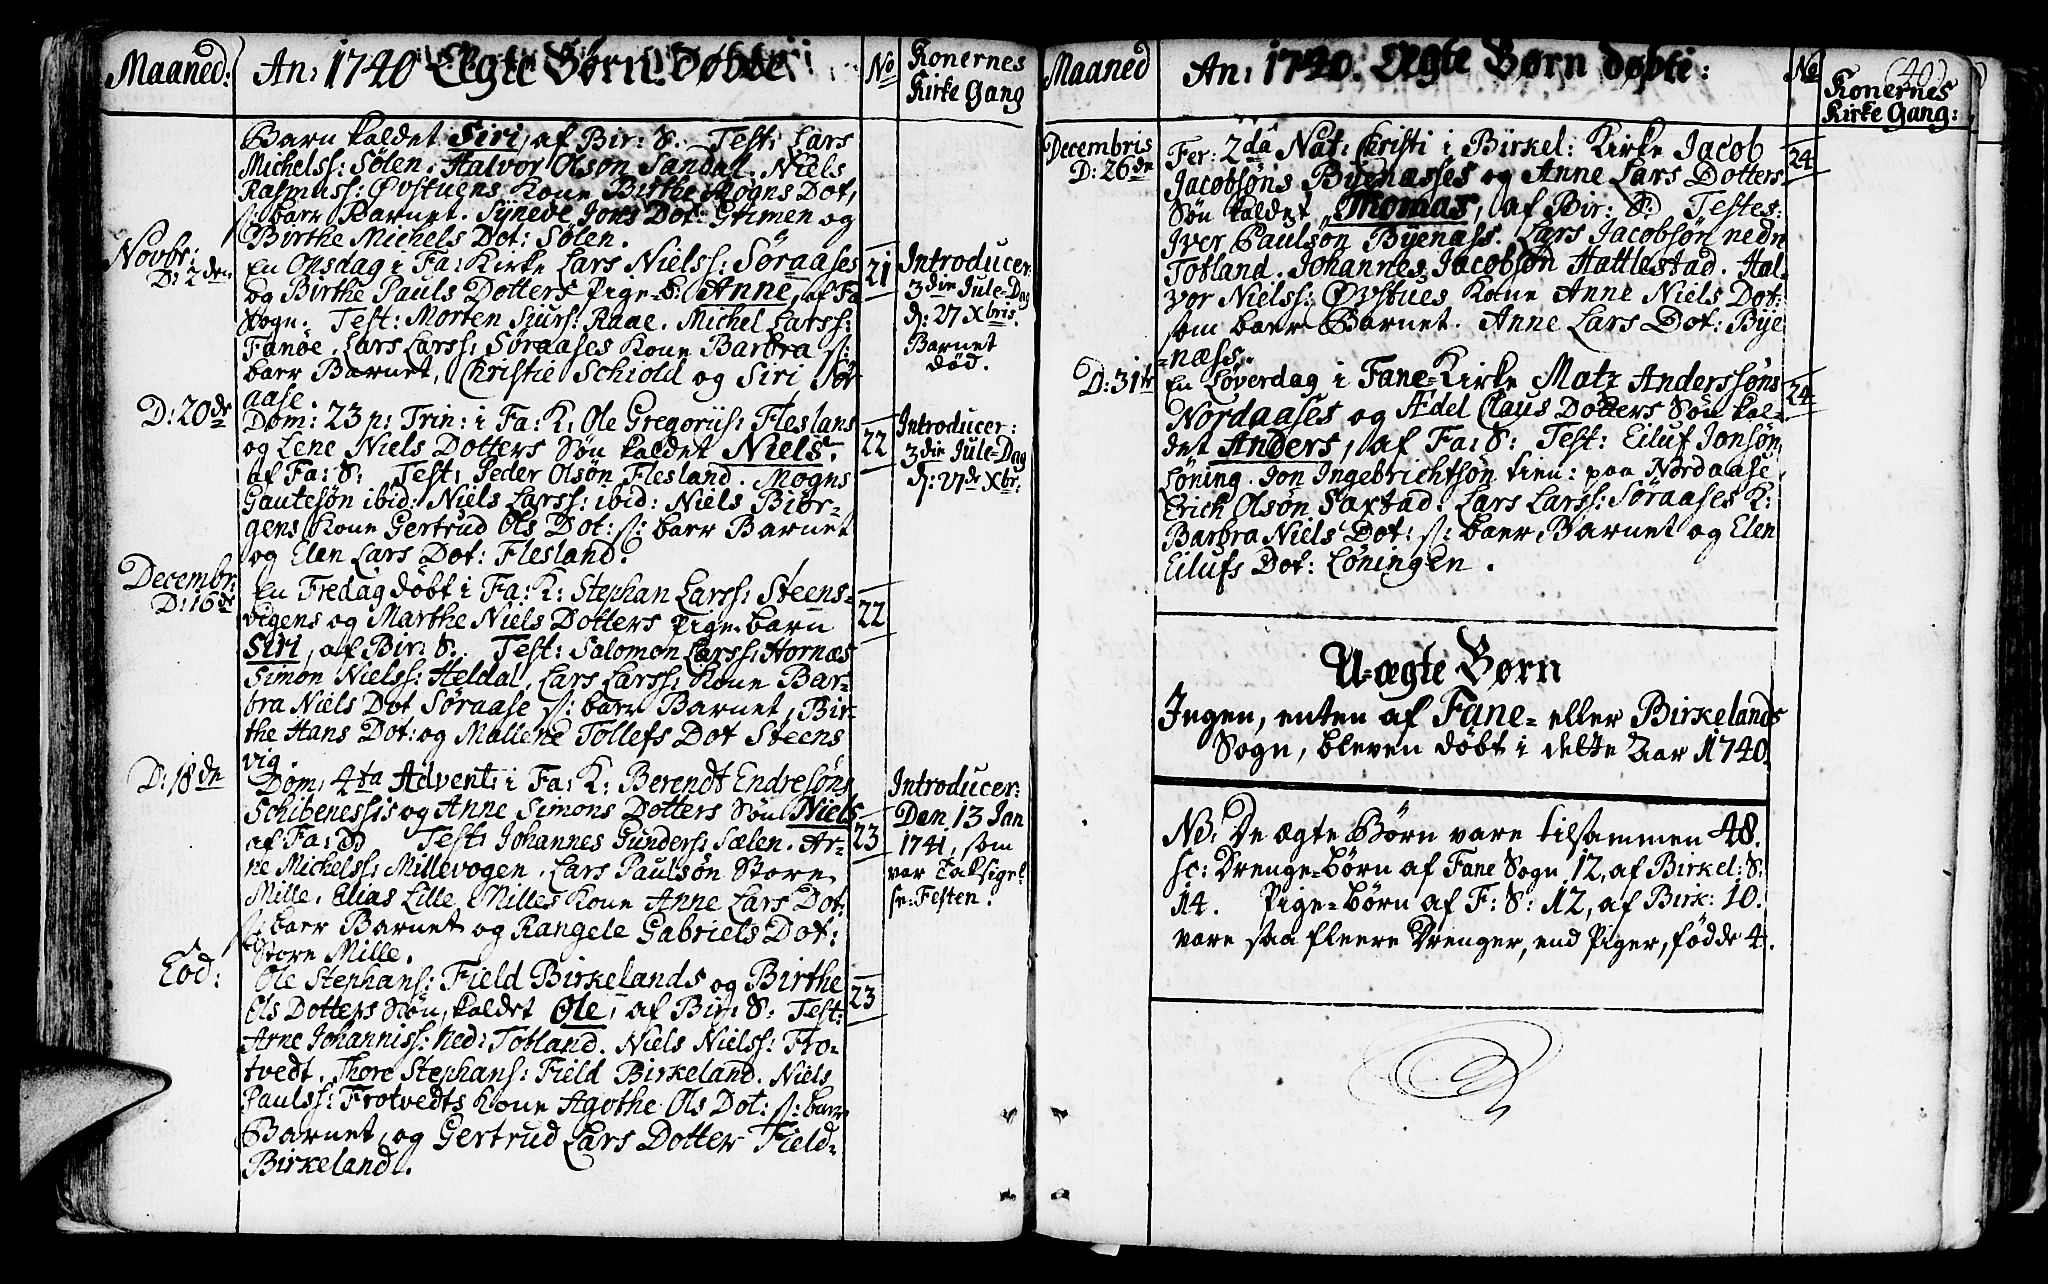 Maaned: An: 1740 Ægte Børn Døbte: No Konernes Kirke Gang
Barn kaldet Siri, af Bir: S. Test: Lars
Michelss: Sølen. Halvor Olsøn Sandal. Niels
Rasmuss: Øvstuens Kone Birthe Mogns Dot,
s: baer Barnet. Syneve Jons Dot: Grimen og
Birthe Michels Dot: Sølen.
Novbr:
D: 2den
En Onsdag i Fa: Kirke Lars Nielss: Søraases
og Birthe Pauls Dotters Pige-b: Anne, af Fa
Sogn. Test: Morten Siurs: Raae. Michel Larss:
Fanøe. Lars Larss: Søraases Kone Barbra s:
baer Barnet, Christie Schiold og Siri Sør
aase.
21
Introducer:
3die Jule-Dag
d: 27 Xbris.
Barnet
død.
D: 20de
Dom: 23 p: Trin: i Fa: K: Ole Gregoriis: Fleslans
og Lene Niels Dotters Søn kaldet Niels.
af Fa: S: Test: Peder Olsøn Flesland. Mogns
Gautesøn ibid: Niels Larss: ibid: Niels Biør-
gens Kone Gertrud Ols Dot: s: baer Barnet
og Elen Lars Dot: Flesland.
22
Introducer:
3die Jule-Dag
d: 27de Xbr:
Decembr:
D: 16de
En Fredag døbt i Fa: K: Stephan Larss: Steens-
vigens og Marthe Niels Dotters Pige-barn
Siri, af Bir: S. Test: Salomon Larss: Hornæs
Simon Nielss: Heldal, Lars Larss: Kone Bar-
bra Niels Dot Søraase s: baer Barnet, Bir-
the Hans Dot: og Malene Tollefs Dot Steens
vig.
22
D: 18de
Dom: 4ta Advent: i Fa: K: Berendt Endresøns
Schibenessis og Anne Simons Dotters Søn Niels
af Fa: S Test: Johannes Gunders: Sælen. Ar-
ne Michelss: Millevogen. Lars Paulsøn Store
Mille. Elias Lille Milles Kone Anne Lars Dot:
s: baer Barnet og Rangele Gabriels Dot:
Store Mille.
23
Introducer:
Den 13 Jan
1741, som
var Taksigel-
se-Festen.
Eod:
Ole Stephans: Field Birkelands og Birthe
Ols Dotters Søn, kaldet Ole, af Bir: S: Test:
Arne Johanniss: Ned: Totland. Niels Nielss: Fro-
tvedt. Thore Stephans: Field Birkeland. Niels
Paulss: Frotvedts Kone Agothe Ols Dot: s: baer
Barnet, og Gertrud Lars Dotter Field-
Birkeland.
23
Maaned An: 1740. Ægte Børn døbte: No Konernes Kirke Gang:
(40)
Decembris
D: 26de
Fer: 2da Nat: Christi i Birkel: Kirke Jacob
Jacobsøns Byenæsses og Anne Lars Dotters
Søn kaldet Thomas, af Bir: S: Testes:
Iver Paulsøn Byenæss. Lars Jacobsøn nedre
Totland. Johannes Jacobsøn Hattlestad. Hal-
vor Nielss: Øvstues Kone Anne Niels Dot:
som baer Barnet. Anne Lars Dot: Bye
-næss.
24
D: 31te
En Løverdag i Fane-Kirke Matz Anderssøns
Nordaases og Ædel Claus Dotters Søn kal-
det Anders, af Fa: S: Test: Eiluf Jonsøn
Løning. Jon Ingebrichtsøn tien: paa Nordaase
Erick Olsøn Saxtad. Lars Larss: Søraases K:
Barbra Niels Dot: s: baer Barnet og Elen
Eilufs Dot: Løningen.
24
U-ægte Børn
Ingen, enten af Fane- eller Birkelands
Sogn, bleven døbt i dette Aar 1740.
NB: De ægte Børn vare tilsammen 48.
sc: Drenge-børn af Fane Sogn 12, af Birkel: S:
14. Pige-børn af F: S: 12, af Birk: 10.
vare saa fleere Drenger, end Piger, fødde 4.